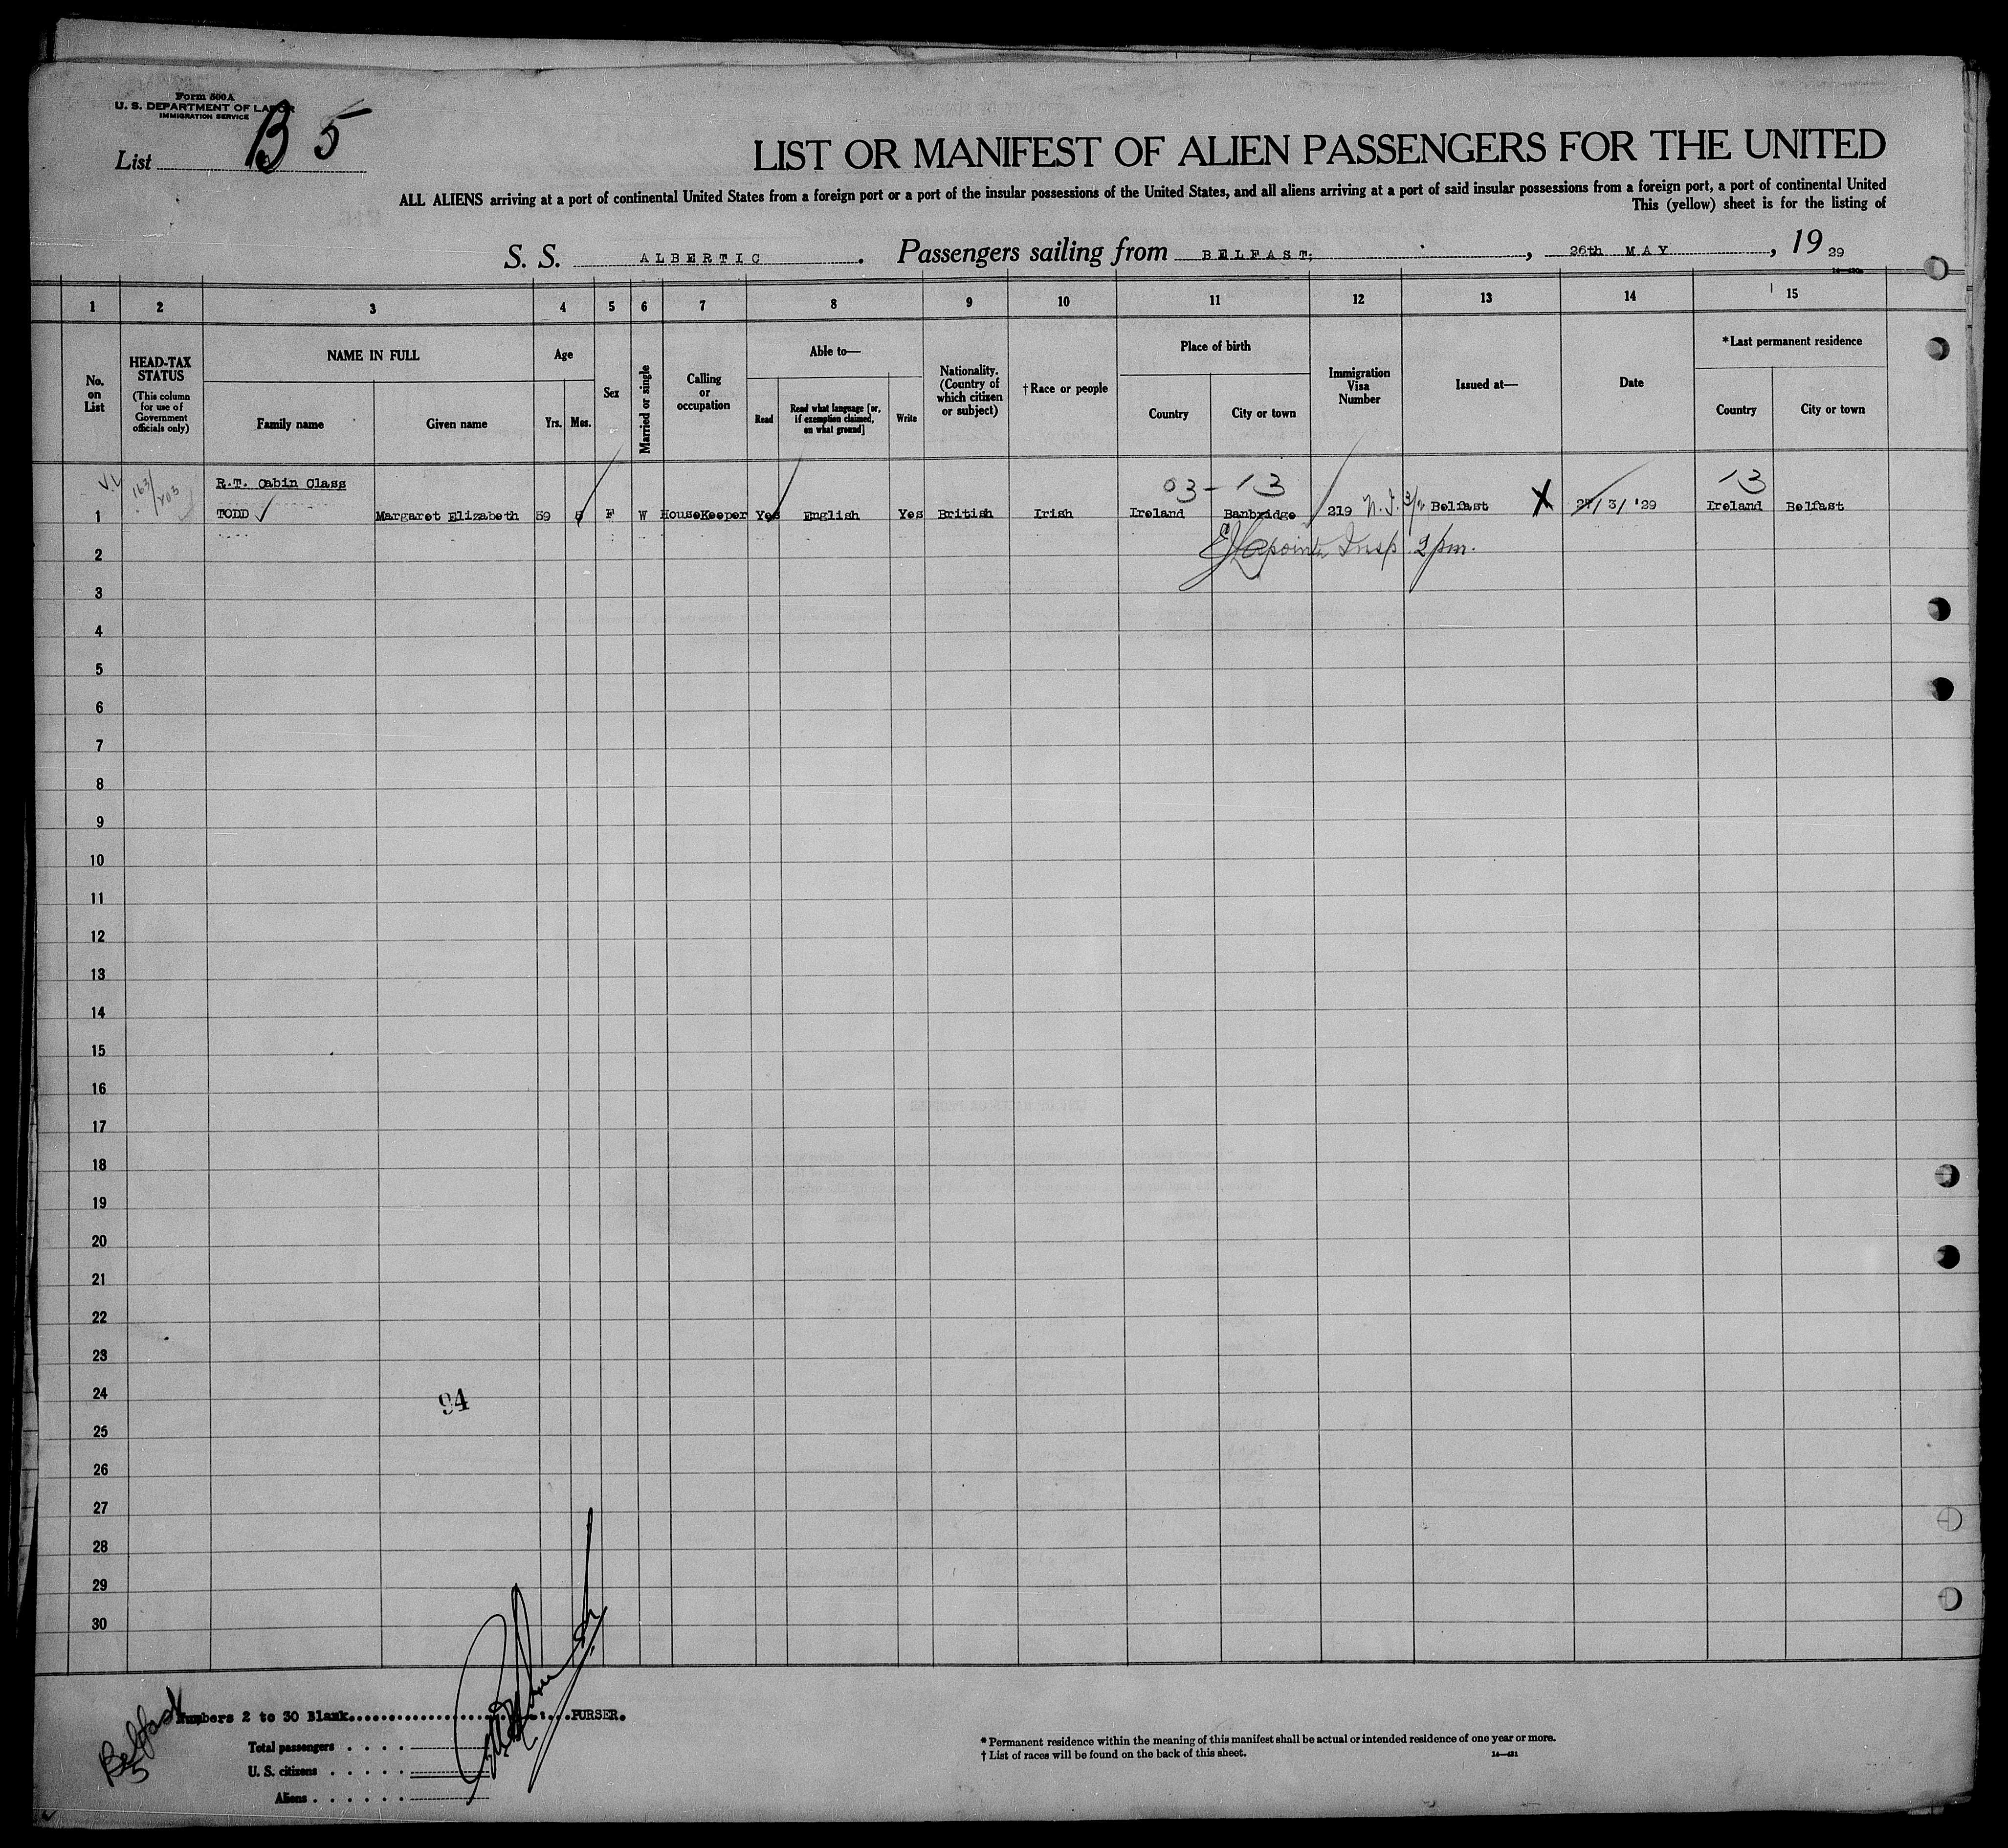 Form 500A
U. S. DEPARTMENT OF LABOR
IMMIGRATION SERVICE
List B 5
LIST OR MANIFEST OF ALIEN PASSENGERS FOR THE UNITED
ALL ALIENS arriving at a port of continental United States from a foreign port or a port of the insular possessions of the United States, and all aliens arriving at a port of said insular possessions from a foreign port, a port of continental United
This (yellow) sheet is for the listing of
S. S. ALBERTIC. Passengers sailing from BELFAST, 26th MAY, 1929
1 2 3 4 5 6 7 8 9 10 11 12 13 14 15
No. on List
HEAD-TAX STATUS (This column for use of Government officials only)
NAME IN FULL
Family name Given name
Age
Yrs. Mos.
Sex
Married or single
Calling or occupation
Able to—
Read Read what language [or, if exemption claimed, on what ground] Write
Nationality. (Country of which citizen or subject)
†Race or people
Place of birth
Country City or town
Immigration Visa Number
Issued at—
Date
*Last permanent residence
Country City or town
163/ R.T. Cabin Class 03-13 13
1 TODD Margaret Elizabeth 59 5 F W HouseKeeper Yes English Yes British Irish Ireland Banbridge 219 Belfast X 27/3/'29 Ireland Belfast
2 Insp. 2 pm.
3
4
5
6
7
8
9
10
11
12
13
14
15
16
17
18
19
20
21
22
23
24
94
25
26
27
28
29
30
Belfast 5
Numbers 2 to 30 Blank PURSER.
Total passengers
U. S. citizens
Aliens
* Permanent residence within the meaning of this manifest shall be actual or intended residence of one year or more.
† List of races will be found on the back of this sheet.